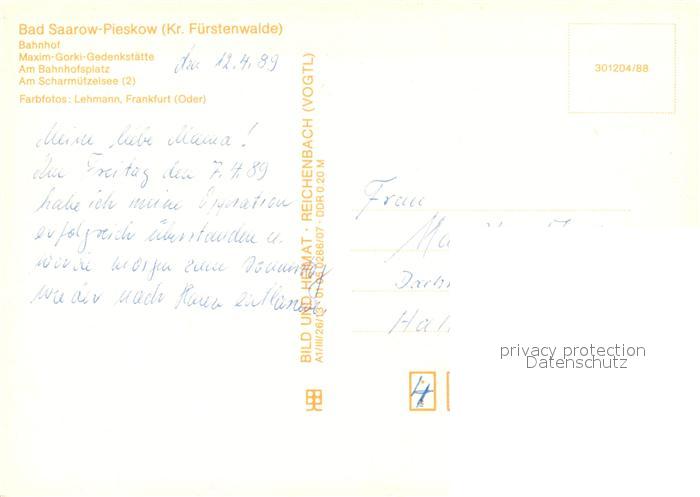 Bad Saarow-Pieskow (Kr. Fürstenwalde)
Bahnhof
Maxim-Gorki-Gedenkstätte
Am Bahnhofsplatz
Am Scharmützelsee (2)
Farbfotos: Lehmann, Frankfurt (Oder)
den 12.4.89
Meine liebe Mama!
Am Freitag den 7.4.89
habe ich meine Operation
erfolgreich überstanden u.
werde morgen zum Donnerstag
wieder nach Hause entlassen
BILD UND HEIMAT · REICHENBACH (VOGTL)
A1/III/26/13 · DDR 0,20 M
301204/88
Frau
Ma
Hal
4
privacy protection
Datenschutz